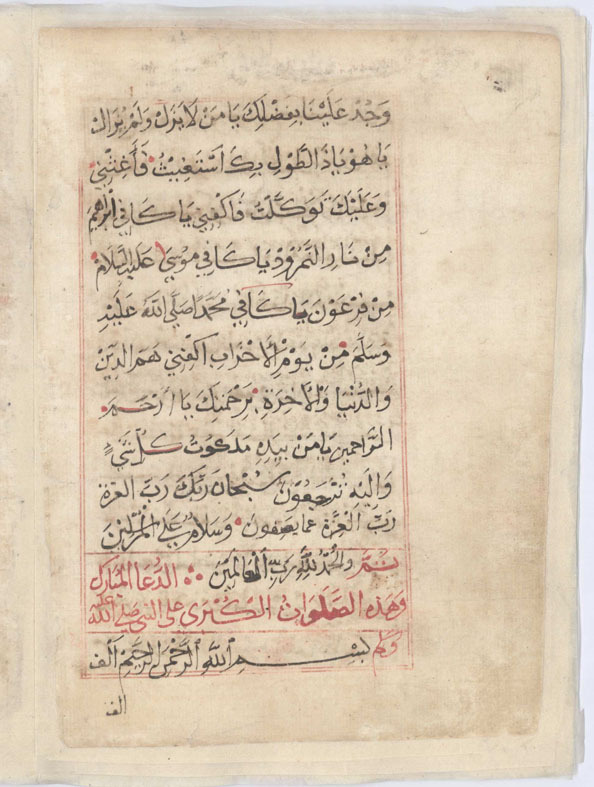 وَجُدْ عَلَيْنَا بِفَضْلِكَ يَا مَنْ لَا يَزَلْ وَلَمْ يَزَالُ
يَا هُوَ يَاذَ الطَّوْلِ بِكَ اَسْتَغِيثُ فَأَغِثْنِي
وَعَلَيْكَ تَوَكَّلْتُ فَاكْفِنِي يَا كَافِي اِبْرَاهِيمَ
مِنْ نَارِ النَّمْرُوْدْ يَا كَافِي مُوْسٰى عَلَيْهِ السَّلَامْ
مِنْ فِرْعَوْنَ يَا كَافِي مُحَمَّدًا صَلَّى اللّٰهُ عَلَيْهِ
وَسَلَّمَ مِنْ يَوْمِ الْأَحْزَابِ اكْفِنِي هَمَّ الدِّيْنِ
وَالدُّنْيَا وَالْأَخِرَةِ بِرَحْمَتِكَ يَا اَرْحَمَ
الرَّاحِمِينَ يَا مَنْ بِيَدِهِ مَلَكُوتُ كُلِّ شَيْءٍ
وَاِلَيْهِ تُرْجَعُوْنَ سُبْحَانَ رَبِّكَ رَبِّ الْعِزَّةِ
رَبِّ الْعِزَّةِ عَمَّا يَصِفُونَ وَسَلَامٌ عَلَى الْمُرْسَلِينَ
تَمَّ وَالْحَمْدُ لِلّٰهِ رَبِّ الْعَالَمِينَ الدُّعَا الْمُبَارَكْ
وَهٰذِهِ الصَّلَوَاتُ الْكُبْرٰى عَلَى النَّبِي صَلَّى اللّٰهُ عَلَيْهِ
وَسَلَّمَ بِسْمِ اللّٰهِ الرَّحْمٰنِ الرَّحِيْمِ اَلْفُ
الف